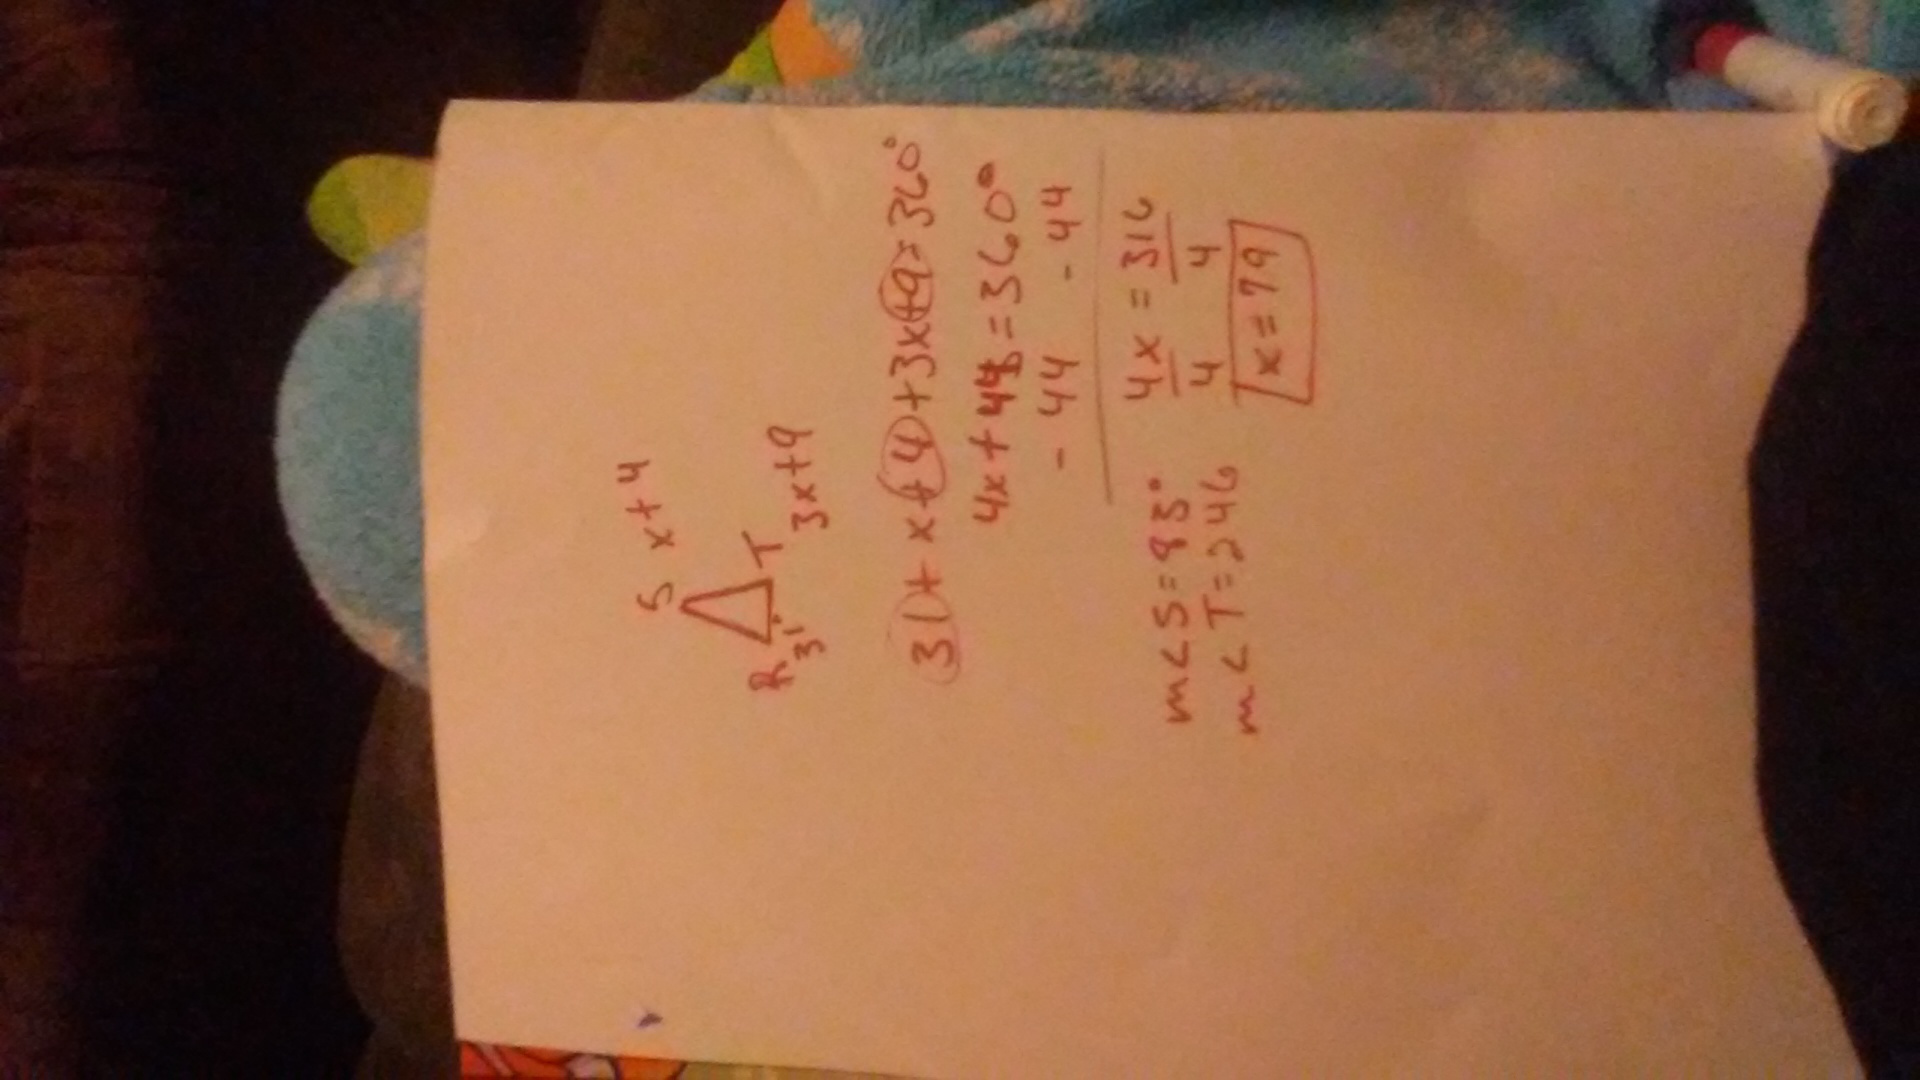 S x+4
R T
31° 3x+9
31+x+4+3x+9=360°
4x+44=360°
-44 -44
4x = 316
4 4
x=79
m<S=83°
m<T=246